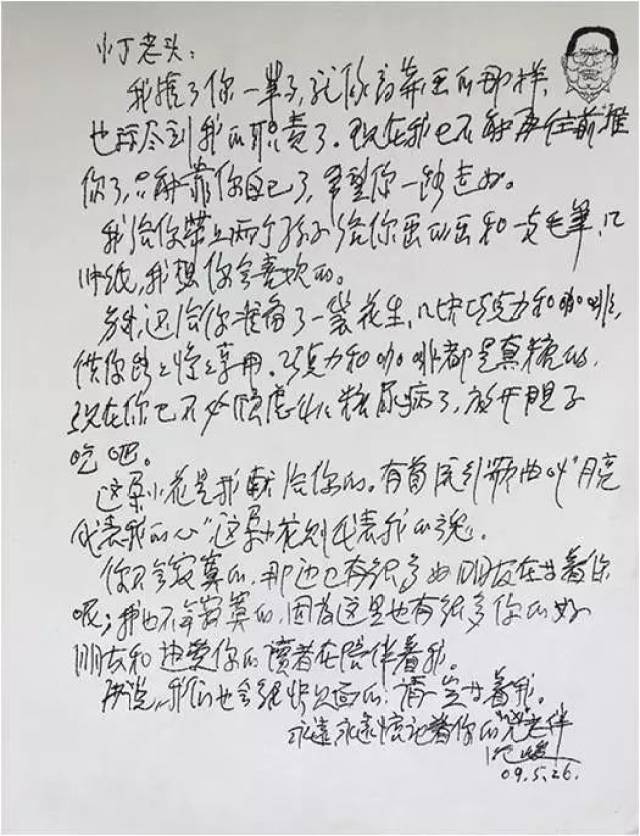 小丁老头:
我推了你一辈子,就像高莽画的那样,
也算尽到我的职责了。现在我已不能再往前推
你了,只能靠你自己了,希望你一路走好。
我给你带上两个孙子给你画的画和一支毛笔,几
张纸,我想你会喜欢的。
另外,还给你准备了一袋花生,几块巧克力和咖啡,
供你路上慢慢享用。巧克力和咖啡都是真糖的,
现在你已不必顾虑什么糖尿病了,放开胆子
吃吧。
这朵小花是我献给你的。有首流行歌曲叫"月亮
代表我的心"这朵小花则代表我的魂。
你不会寂寞的,那边已有很多好朋友在等着你
呢;我也不会寂寞的,因为这里也有很多你的好
朋友和热爱你的读者在陪伴着我。
再说,我们也会很快见面的,请等着我。
永远永远惦记着你的"凶"老伴
沈峻
09.5.26.